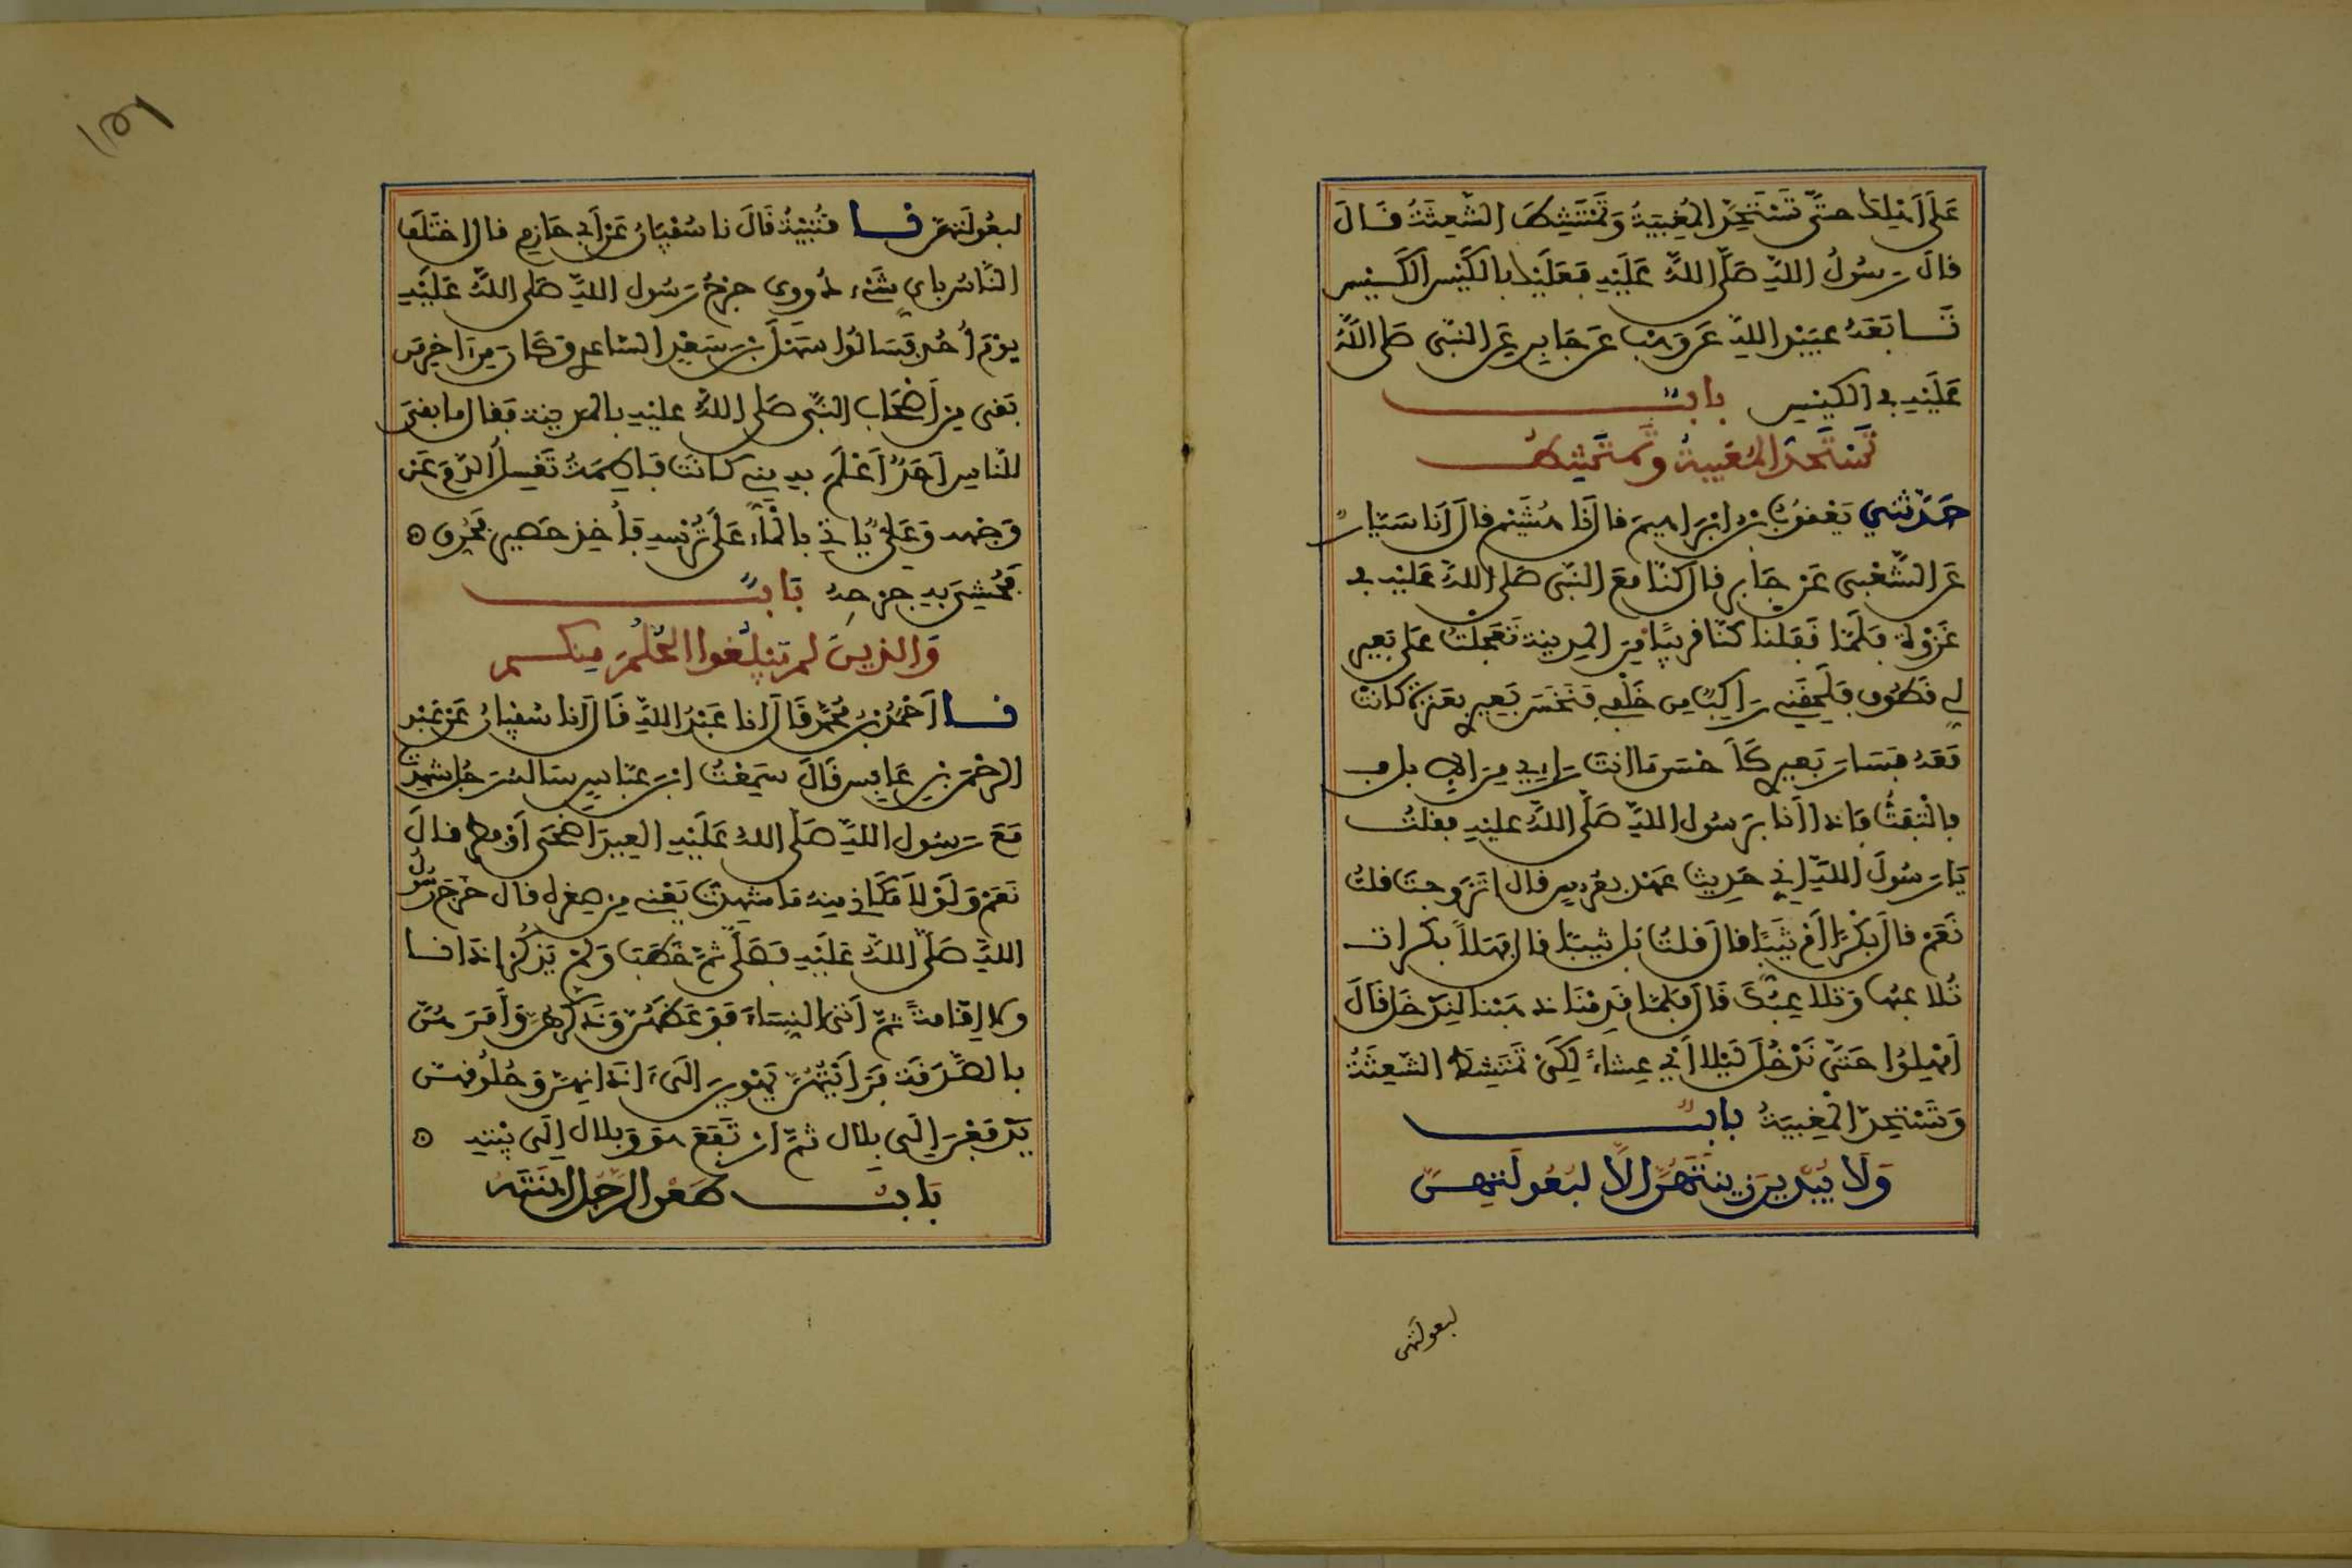 عَلَى أَهْلِكَ حتَّى تَسْتَحِدَّ الْمُغِيبَةُ وَتَمْتَشِطَ الشَّعِثَةُ قَالَ
قالَ رَسُولُ اللهِ صَلَّى اللهُ عَلَيْهِ فَعَلَيْكَ بالكَيْسِ الكَيْسِ
تَابَعَهُ عبَيْدُ اللهِ عَن وَهْبٍ عَن جَابِرٍ عَنِ النَّبِي صَلى اللهُ
عَلَيْهِ في الكيْسِ بابٌ
تَسْتَحِدُّ المُغِيبَةُ وتَمْتَشِطُ
حَدَّثَنِي يَعْقُوبُ بْنُ إِبْرَاهِيمَ قال أَنَا هُشَيْمٌ قال أَنَا سَيَّارٌ
عَنِ الشَّعْبِي عَنْ جَابِرٍ قال كنَّا مَعَ النَّبِي صَلى اللهُ عَلَيْهِ في
غَزْوَةٍ فَلَمَّا قَفَلْنا كنَّا قَرِيبًا مِنَ المَدِينَةِ تَعَجَّلْتُ عَلى بَعِيرٍ
لِي قَطُوفٍ فَلَحِقَنِي رَاكِبٌ مِن خَلْفِي فَنَخَسَ بَعِيرِي بِعَنَزَةٍ كَانَتْ
مَعَهُ فَسَارَ بَعِيرِي كَأَحْسَنِ مَا أَنتَ رَاءٍ مِنَ الإِبِلِ
فَالْتَفَتُّ فَإِذَا أَنَا بِرَسُولِ اللهِ صَلَّى اللهُ عليْهِ فقلتُ
يَا رَسُولَ اللهِ إِنِّي حَدِيثُ عَهْدٍ بِعُرْسٍ قال أَتَزَوَّجْتَ قلتُ
نَعَمْ قالَ بِكْرًا أَمْ ثَيِّبًا قالَ قلتُ بَل ثَيِّبًا قال فَهَلَّا بكرا
تُلَاعِبُهَا وَتُلَاعِبُكَ قَالَ فَلَمَّا قَدِمْنَا ذَهَبْنَا لِنَدْخُلَ فَقَالَ
أَمْهِلُوا حَتَّى نَدْخُلَ لَيْلًا أَيْ عِشَاءً لِكَيْ تَمْتَشِطَ الشَّعِثَةُ
وَتَسْتَحِدَّ الْمُغِيبَةُ بابٌ
وَلَا يُبْدِينَ زِينَتَهُنَّ إِلَّا لِبُعُولَتِهِنَّ
لبعولتهن
١٥٦
لبعُولَتهنّ نا قُتَيْبَةُ قَالَ نا سُفْيَانُ عَنْ أَبِي حَازِمٍ قال اخْتَلَفَ
النَّاسُ بِأَيِّ شَيْءٍ دُووِيَ جرْحُ رَسُولِ اللهِ صَلى اللهُ عَلَيْهِ
يَوْمَ أُحُدٍ فَسَأَلُوا سَهْلَ بْنَ سَعْدٍ السَّاعِدِي وَكَانَ مِن آخِرِ مَن
بَقِيَ مِنْ أَصْحَابِ النَّبِي صَلى اللهُ عليْهِ بالمَدِينَةِ فَقالَ ما بَقِيَ
للنَّاسِ أَحَدٌ أَعْلَمُ بِهِ مِنِّي كَانَتْ فَاطِمَةُ تَغْسِلُ الدَّمَ عَن
وَجْهِهِ وَعَلِيٌّ يَأْتِي بالْمَاءِ عَلَى تُرْسِهِ فَأُخِذَ حَصِيرٌ فَحُرِّقَ
فَحُشِيَ بِهِ جرْحُهُ بَابٌ
وَالذِينَ لَمْ يَبْلُغوا الحُلُمَ مِنكم
نا أَحْمَدُ بْنُ مُحَمَّدٍ قَالَ انا عَبْدُ اللهِ قَالَ أَنا سُفْيَانُ عَنْ عَبْدِ
الرَّحْمَنِ بْنِ عَابِسٍ قَالَ سَمِعْتُ ابْنَ عَبَّاسٍ سَأَلَهُ رَجُلٌ شَهِدْتَ
مَعَ رَسُولِ اللهِ صَلَّى اللهُ عَلَيْهِ العِيدَ أَضْحَى أَوْ فِطْرًا قالَ
نَعَمْ وَلَوْلَا مَكَانِي مِنْهُ مَا شَهِدْتُهُ يَعْنِي مِنْ صِغَرِهِ قال خَرَجَ رَسُولُ
اللهِ صَلَّى اللهُ عَلَيْهِ فَصَلَّى ثُمَّ خَطَبَ وَلَمْ يَذْكُرْ أَذَانا
ولا إِقَامَةً ثُمَّ أَتَى النِّسَاءَ فَوَعَظَهُنَّ وَذَكَّرَهُنَّ وَأَمَرَهُنَّ
بالصَّدَقَةِ فَرَأَيْتُهُنَّ يَهْوِينَ إِلَى آذَانِهِنَّ وَحُلُوقِهِنَّ
يَدْفَعْنَ إِلَى بِلَالٍ ثُمَّ ارْتَفَعَ هُوَ وَبِلَالٌ إِلَى بَيْتِهِ
بَابُ طَعْنِ الرَّجُلِ ابْنَتَهُ